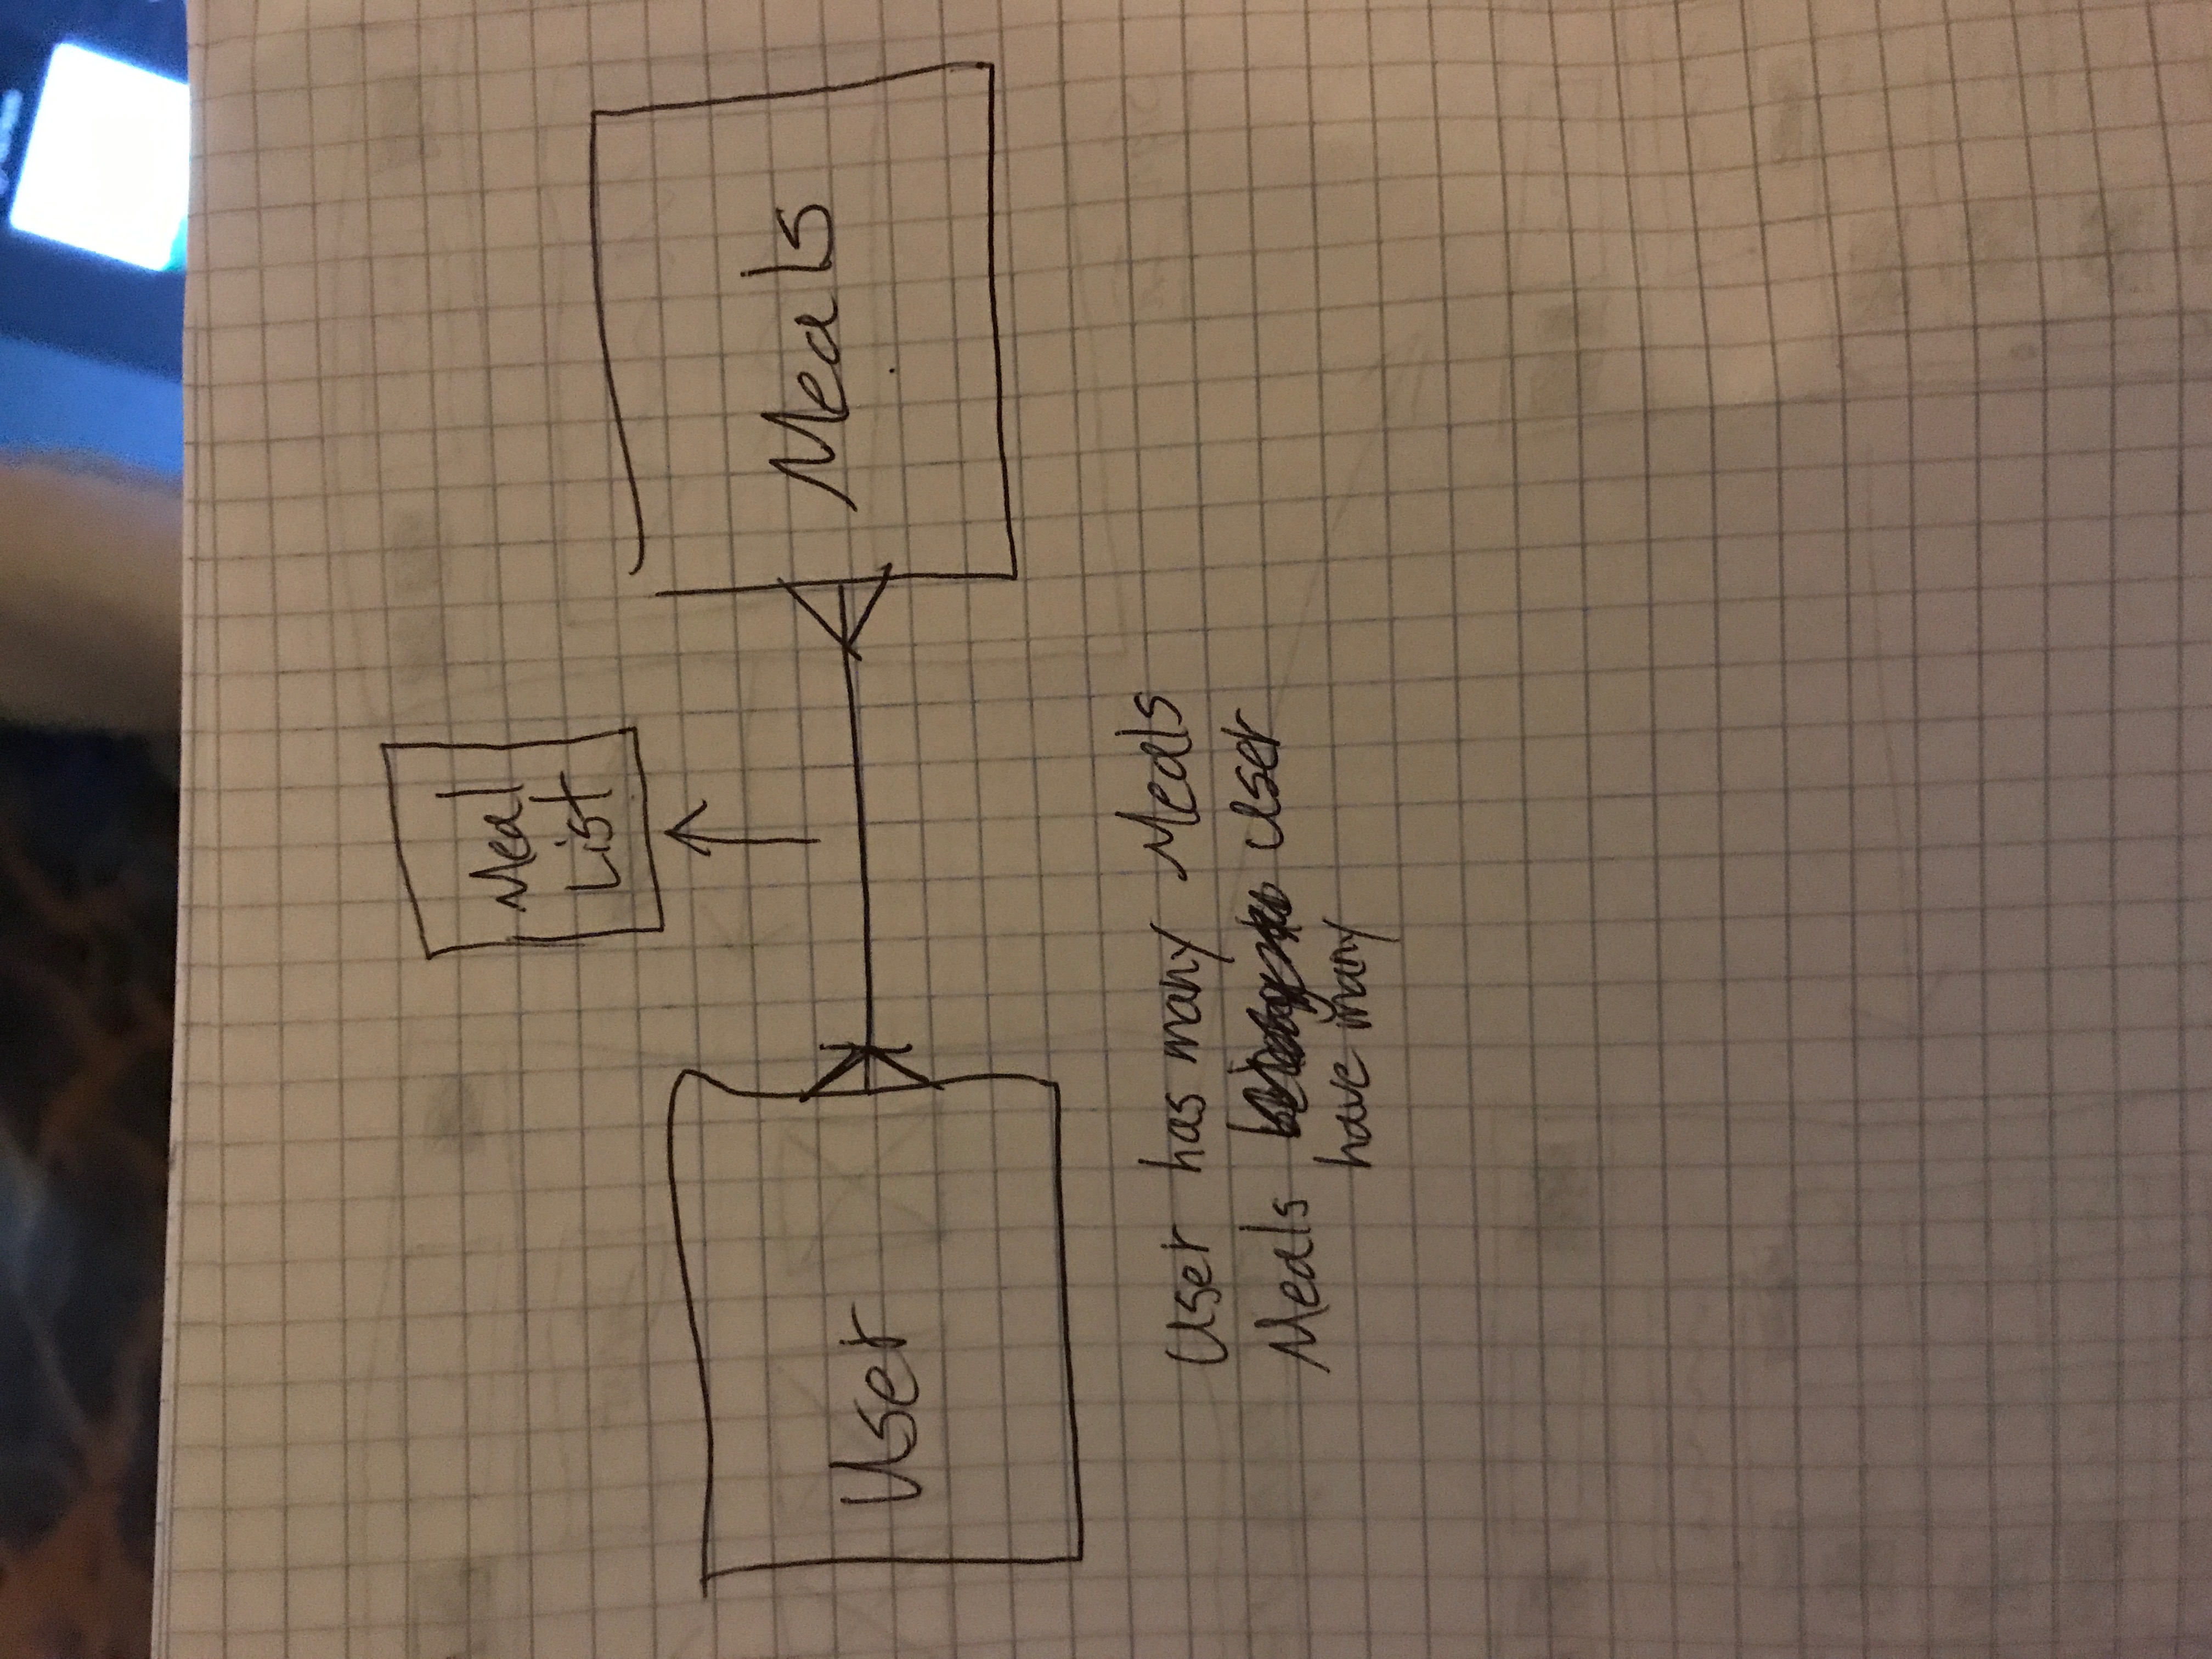 Meal
List
User
Meals
User has many Meals
Meals user
have many